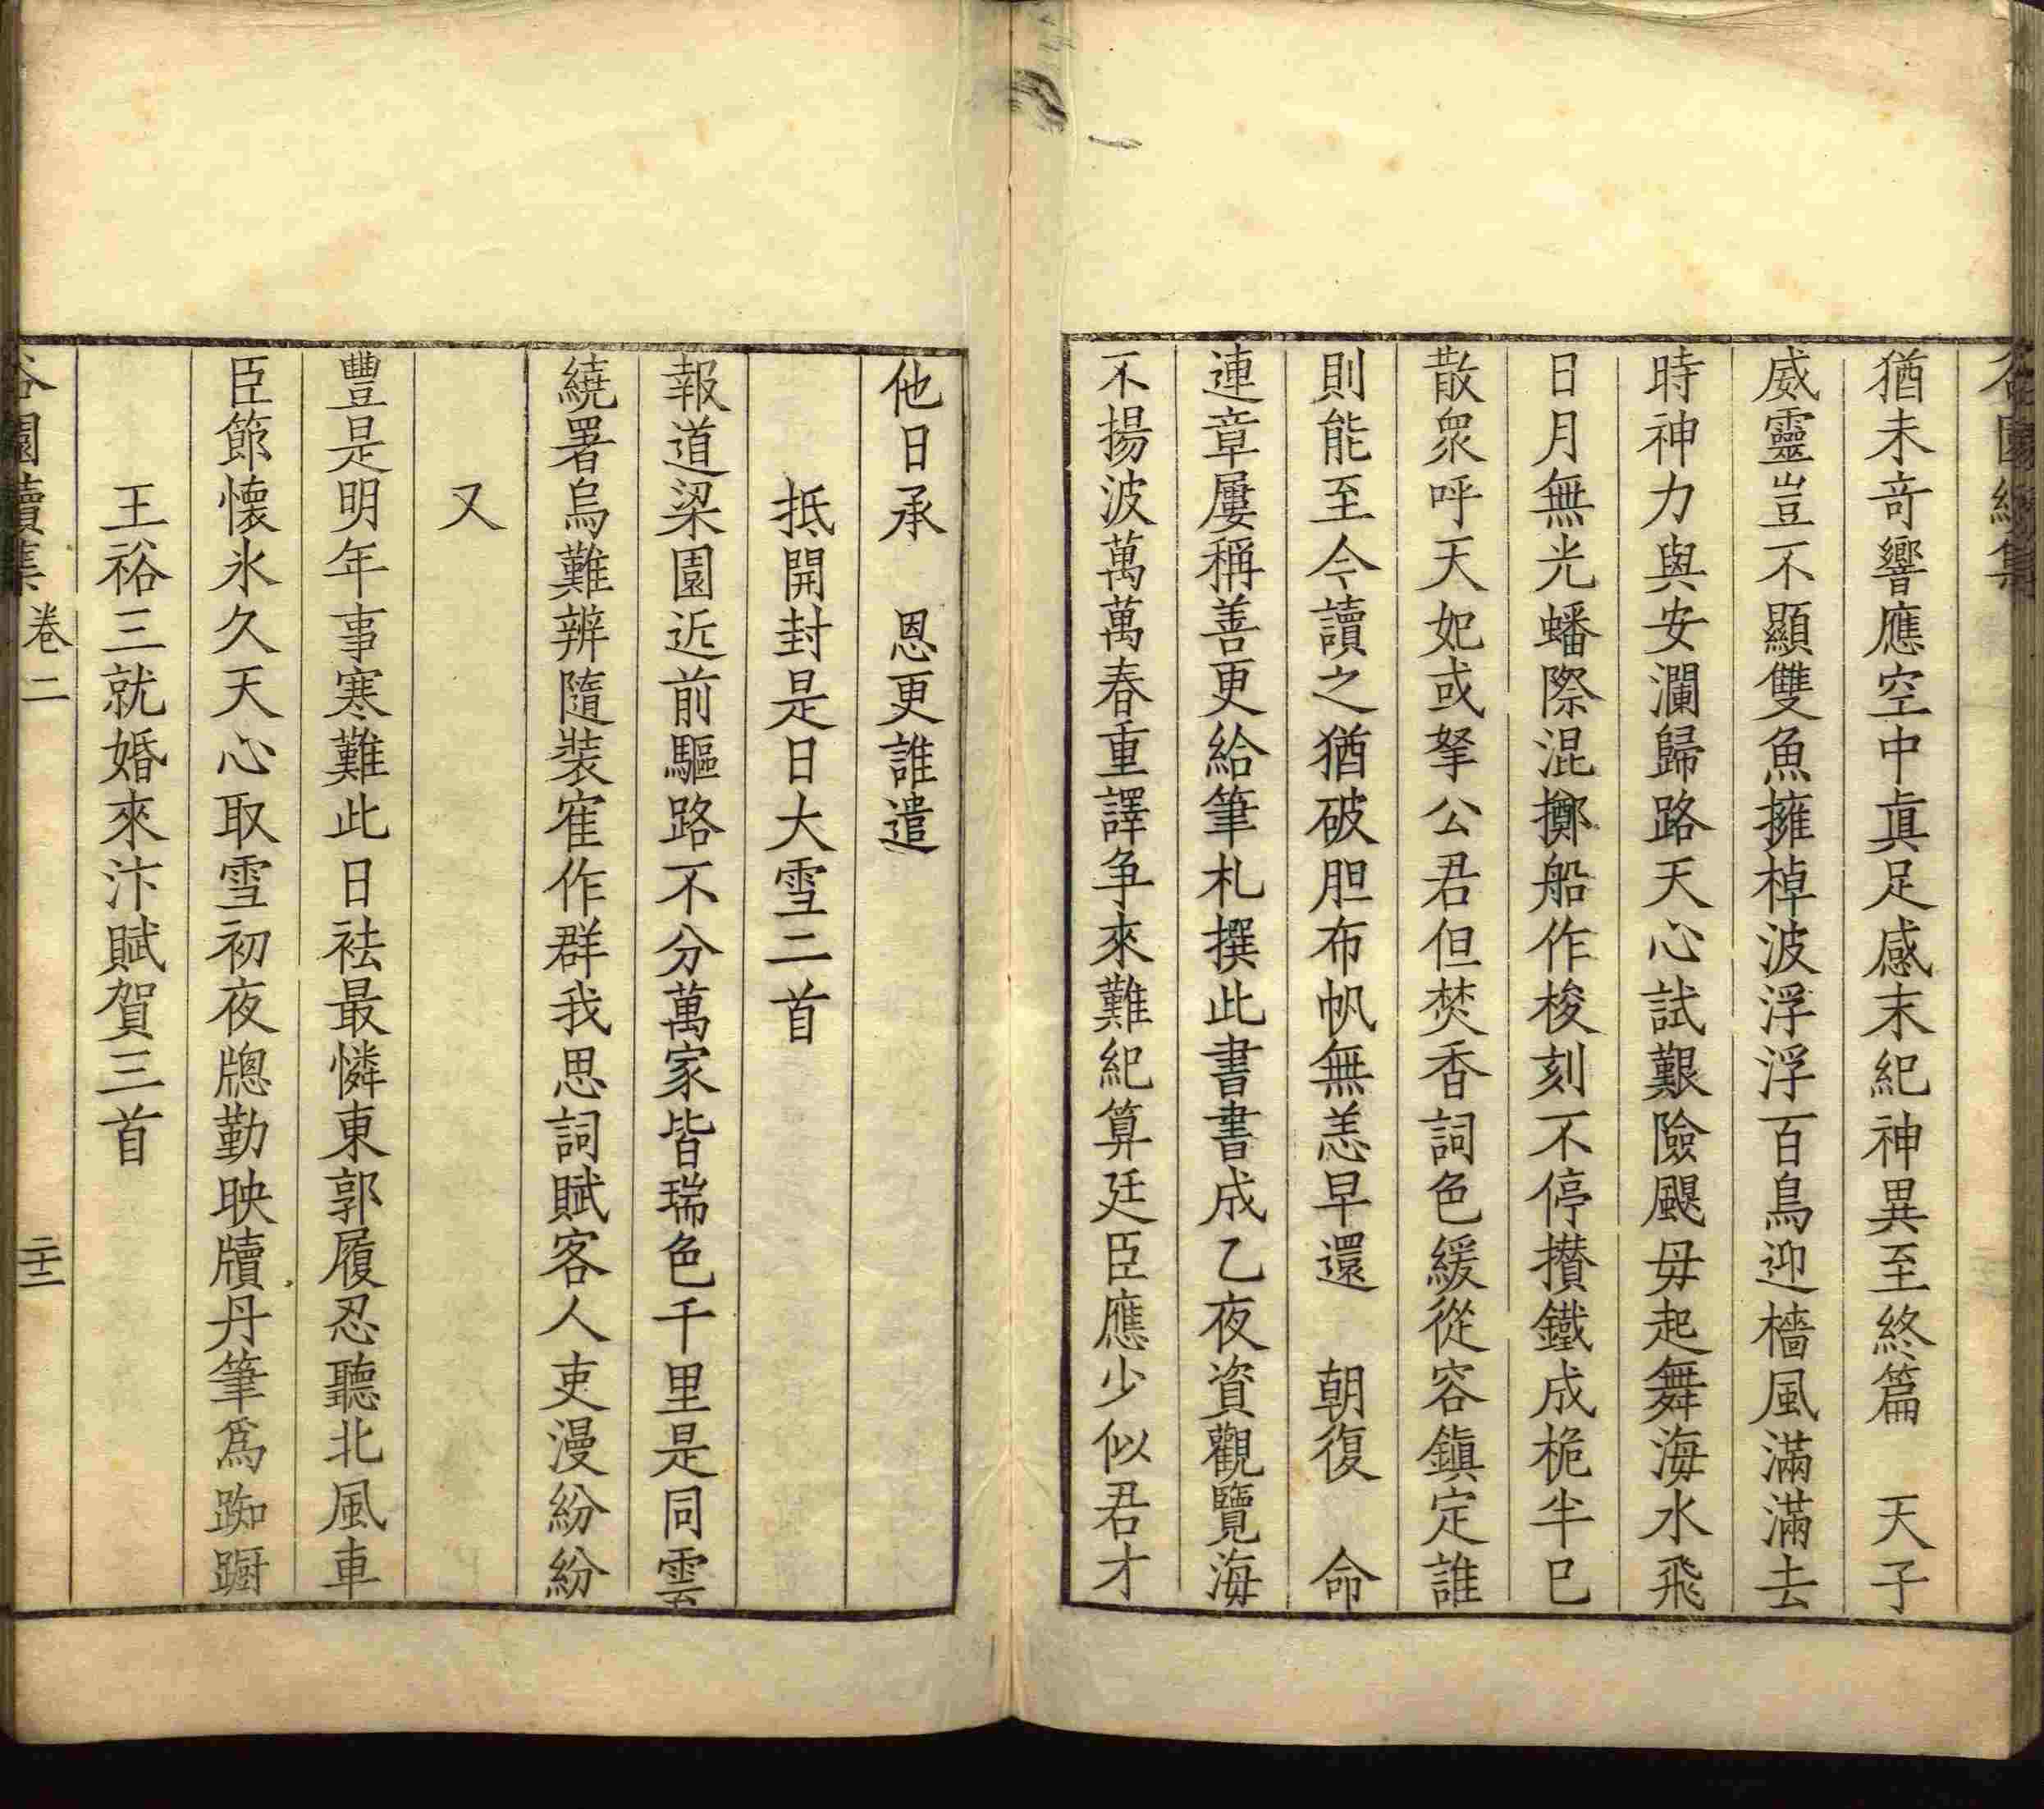 猶未奇響應空中真足感末紀神異至終篇　天子
威靈豈不顯雙魚擁棹波浮浮百鳥迎檣風滿滿去
時神力與安瀾歸路天心試艱險颶毋起舞海水飛
日月無光蟠際混擲船作梭刻不停攢鐵成桅半巳
散衆呼天妃或拏公君但焚香詞色緩從容鎮定誰
則能至今讀之猶破胆布帆無恙早還　朝復　命
連章屢稱善更給筆札撰此書書成乙夜資觀覽海
不揚波萬萬春重譯争來難紀算廷臣應少似君才
他日承　恩更誰遣
抵開封是日大雪二首
報道梁園近前驅路不分萬家皆瑞色千里是同雲
繞署烏難辨隨裝寉作群我思詞賦客人吏漫紛紛
又
豐是明年事寒難此日袪最憐東郭履忍聽北風車
臣節懷氷久天心取雪初夜牕勤映牘丹筆爲踟蹰
王裕三就婚來汴賦賀三首
谷園續集 卷二 二十二